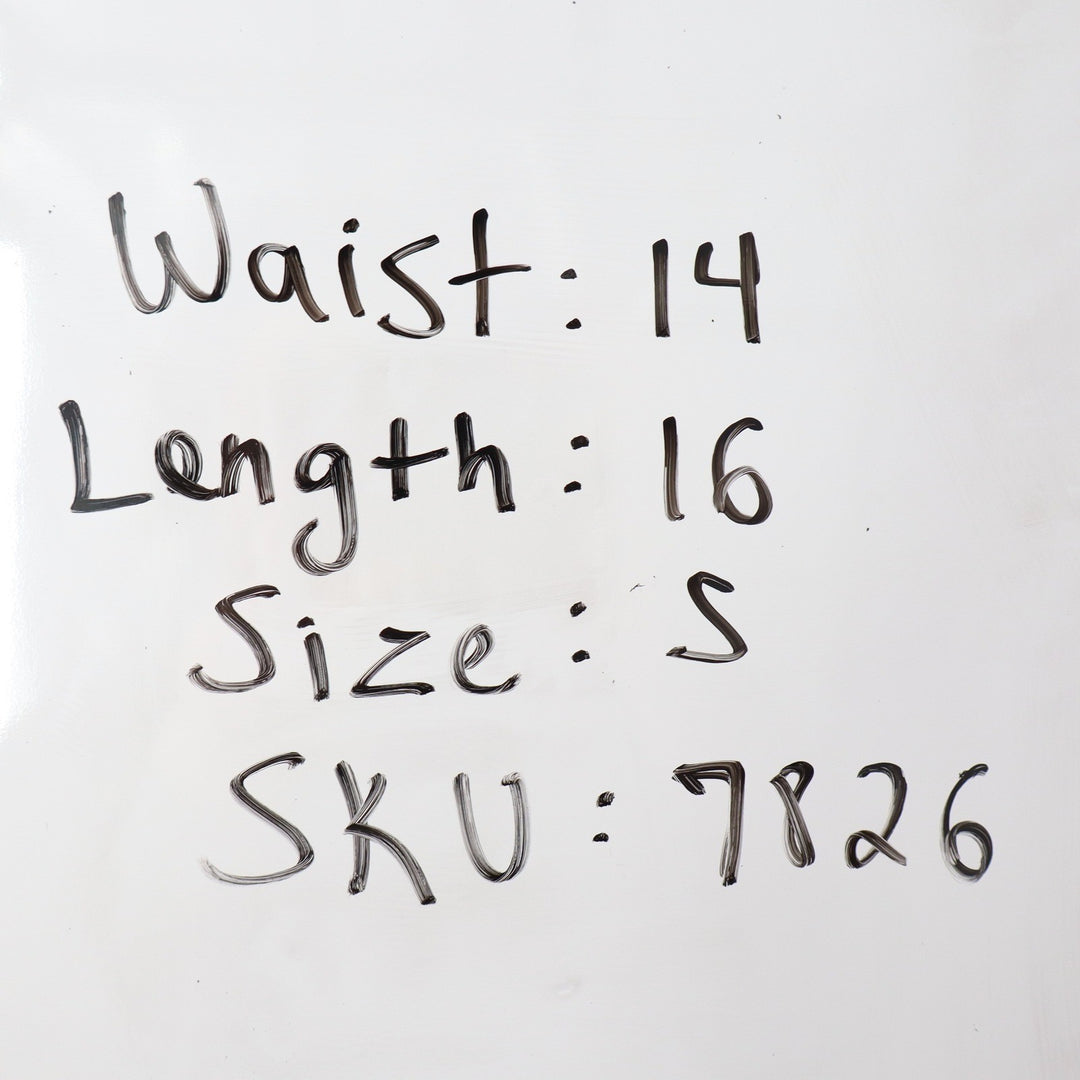 Waist: 14
Length: 16
Size: S
SKU: 7826